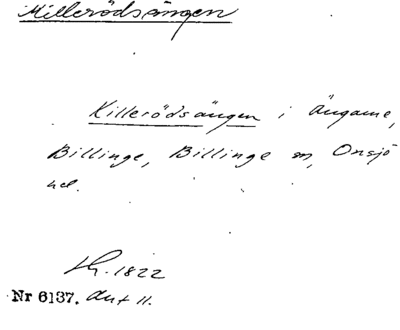 Killerödsängen
Killerödsängen i Ängarne,
Billinge, Billinge sn, Onsjö
hd.
Lh. 1822
Nr 6137. Akt 11.